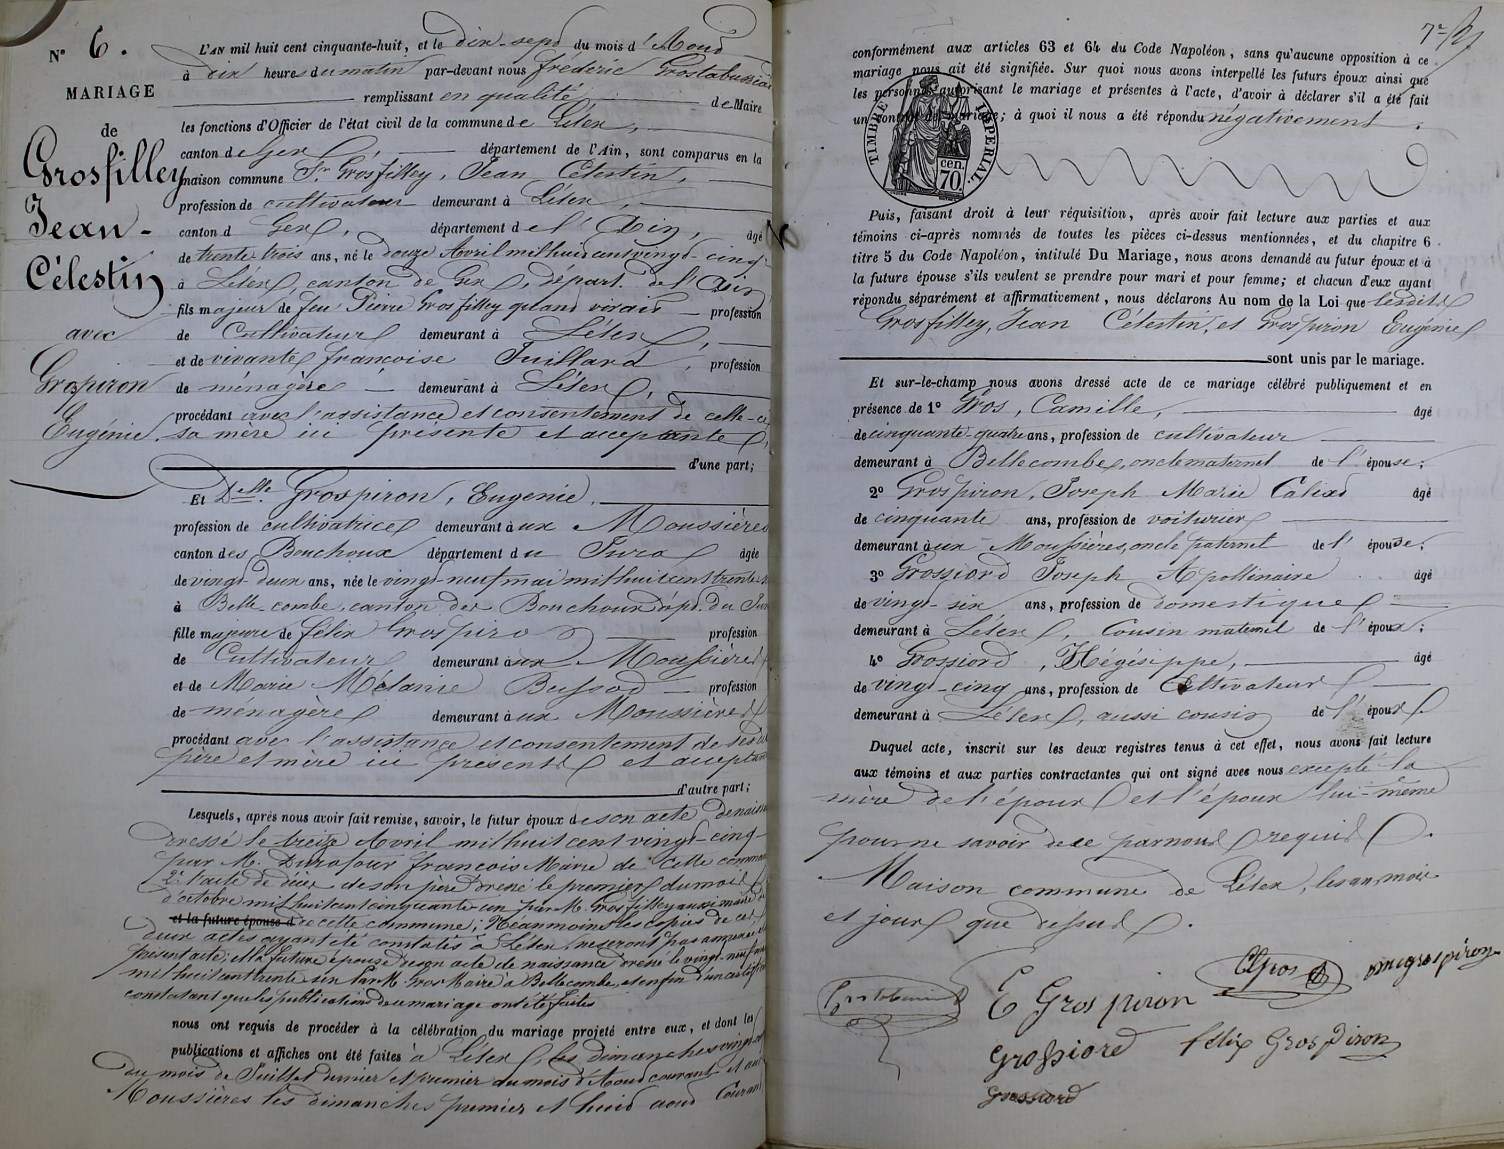 N° 6.
MARIAGE
de
Grosfilley
Jean-
Célestin
avec
Grospiron
Eugénie
L'AN mil huit cent cinquante-huit, et le dix-sept du mois d'Aout
à dix heures du matin par-devant nous frédéric Grostabussiat
remplissant en qualité de Maire
les fonctions d'Officier de l'état civil de la commune de Lélex,
canton de Gex, département de l'Ain, sont comparus en la
maison commune Sr. Grosfilley, Jean Célestin,
profession de cultivateur demeurant à Lélex,
canton d Gex, département de l'Ain, âgé
de trente-trois ans, né le douze Avril mil huit cent vingt-cinq
à Lélex, canton de Gex, départ. de l'Ain
fils majeur de feu Pierre Grosfilley quand vivait profession
de Cultivateur demeurant à Lélex,
et de vivante françoise Juillard, profession
de ménagère demeurant à Lélex,
procédant avec l'assistance et consentement de celle-ci
sa mère ici présente et acceptante,
d'une part;
Et Delle. Grospiron, Eugenie,
profession de cultivatrice demeurant à ux Moussières
canton des Bouchoux département du Jura âgée
de vingt-deux ans, née le vingt-neuf mai mil huit cent trente
à Belle-combe, canton des Bouchoux dép. du Jura
fille majeure de félix Grospiron profession
de Cultivateur demeurant à ux Moussières
et de Marie Mélanie profession
de ménagère demeurant à ux Moussières
procédant avec l'assistance et consentement de ses dits
père et mère ici présents et acceptant
d'autre part;
Lesquels, après nous avoir fait remise, savoir, le futur époux de son acte de naiss
dressé le treize Avril mil huit cent vingt-cinq
par M. Durafour françois Marie de cette commune
2° l'acte de décès de son père dressé le premier du mois
d'octobre mil huit cent cinquante-un par M. Grosfilley aussi maire
et la future épouse d de cette commune; Néanmoins les copies de ces
deux actes ayant été constatés à Lélex ne seront pas annexées
présent acte; et la future épouse de son acte de naissance dressé le vingt-neuf
mil huit cent trente six par M. Gros Maire à Bellecombe, et enfin d'un certificat
constatant que les publications de ce mariage ont été faites
nous ont requis de procéder à la célébration du mariage projeté entre eux, et dont les
publications et affiches ont été faites à Lélex, les dimanches vingt-
du mois de Juillet dernier et premier du mois d'Aout courant et aux
Moussières les dimanches premier et huit aout Courant
7
conformément aux articles 63 et 64 du Code Napoléon, sans qu'aucune opposition à ce
mariage nous ait été signifiée. Sur quoi nous avons interpellé les futurs époux ainsi que
les personnes autorisant le mariage et présentes à l'acte, d'avoir à déclarer s'il a été fait
un contrat de mariage; à quoi il nous a été répondu négativement.
TIMBRE IMPERIAL.
cen.
70.
Puis, faisant droit à leur réquisition, après avoir fait lecture aux parties et aux
témoins ci-après nommés de toutes les pièces ci-dessus mentionnées, et du chapitre 6
titre 5 du Code Napoléon, intitulé Du Mariage, nous avons demandé au futur époux et à
la future épouse s'ils veulent se prendre pour mari et pour femme; et chacun d'eux ayant
répondu séparément et affirmativement, nous déclarons Au nom de la Loi que lesdits
Grosfilley, Jean Célestin, et Grospiron Eugénie
sont unis par le mariage.
Et sur-le-champ nous avons dressé acte de ce mariage célébré publiquement et en
présence de 1° Gros, Camille, âgé
de cinquante-quatre ans, profession de cultivateur
demeurant à Bellecombe, oncle maternel de l'épouse;
2° Grospiron, Joseph Marie Calixt âgé
de cinquante ans, profession de voiturier
demeurant à ux Moussières, oncle paternel de l'épouse;
3° Grossiord Joseph Apollinaire âgé
de vingt-six ans, profession de domestique
demeurant à Lélex, Cousin maternel de l'époux;
4° Grossiord, Hégésippe, âgé
de vingt-cinq ans, profession de Cultivateur
demeurant à Lélex, aussi cousin de l'époux.
Duquel acte, inscrit sur les deux registres tenus à cet effet, nous avons fait lecture
aux témoins et aux parties contractantes qui ont signé avec nous excepté la
mère de l'époux et l'époux lui-même
pour ne savoir de ce par nous requis.
Maison commune de Lélex, les an, mois
et jour que dessus.
CGros
E Grospiron
félix Grospiron
Grossiord
Grossiord